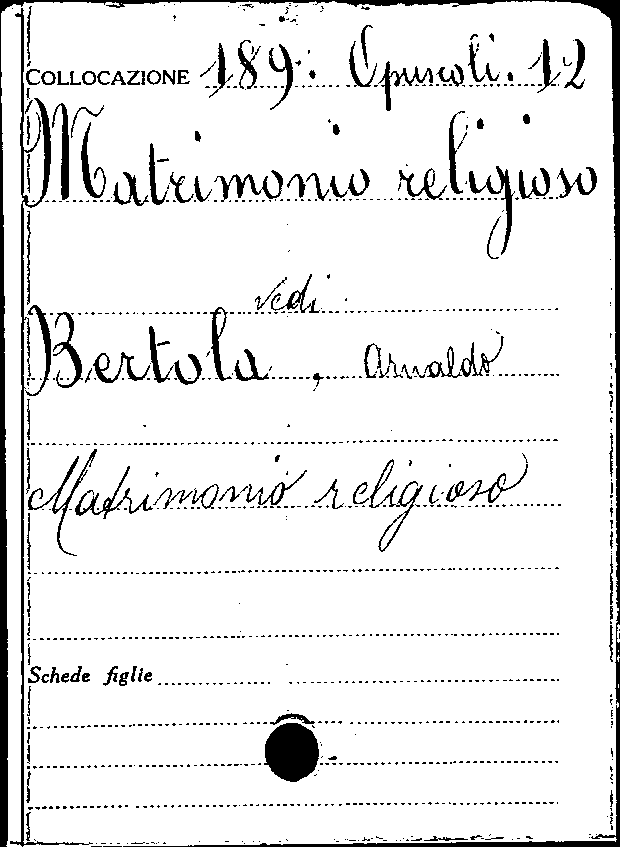 COLLOCAZIONE 189. Opuscoli. 12
Matrimonio religioso
vedi
Bertola, Arnaldo
Matrimonio religioso
Schede figlie